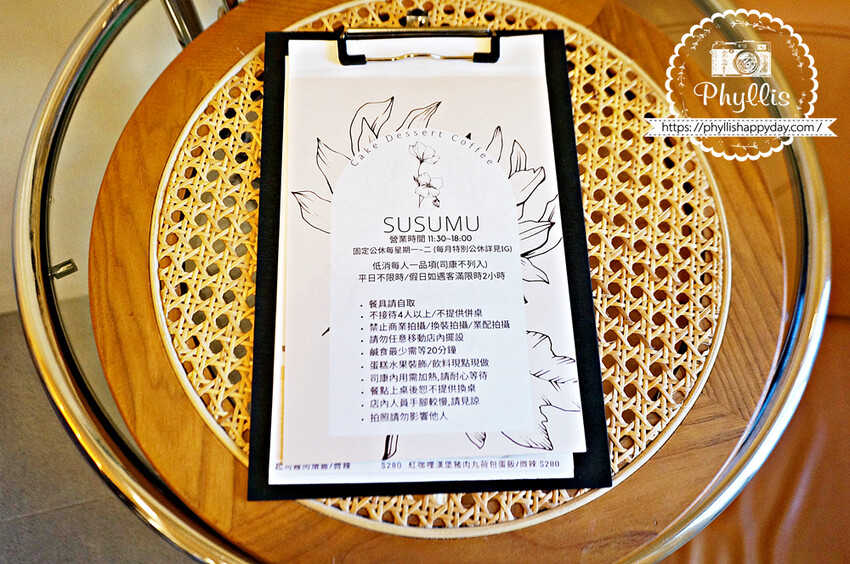 Phyllis
https://phyllishappyday.com/
Cake Dessert Coffee
SUSUMU
營業時間 11:30~18:00
固定公休每星期一~二 (每月特別公休詳見IG)
低消每人一品項(司康不列入)
平日不限時/假日如遇客滿限時2小時
• 餐具請自取
• 不接待4人以上/不提供併桌
• 禁止商業拍攝/換裝拍攝/業配拍攝
• 請勿任意移動店內擺設
• 鹹食最少需等20分鐘
• 蛋糕水果裝飾/飲料現點現做
• 司康內用需加熱,請耐心等待
• 餐點上桌後恕不提供換桌
• 店內人員手腳較慢,請見諒
• 拍照請勿影響他人
/微辣 $280 紅咖哩漢堡豬肉丸荷包蛋飯/微辣 $280